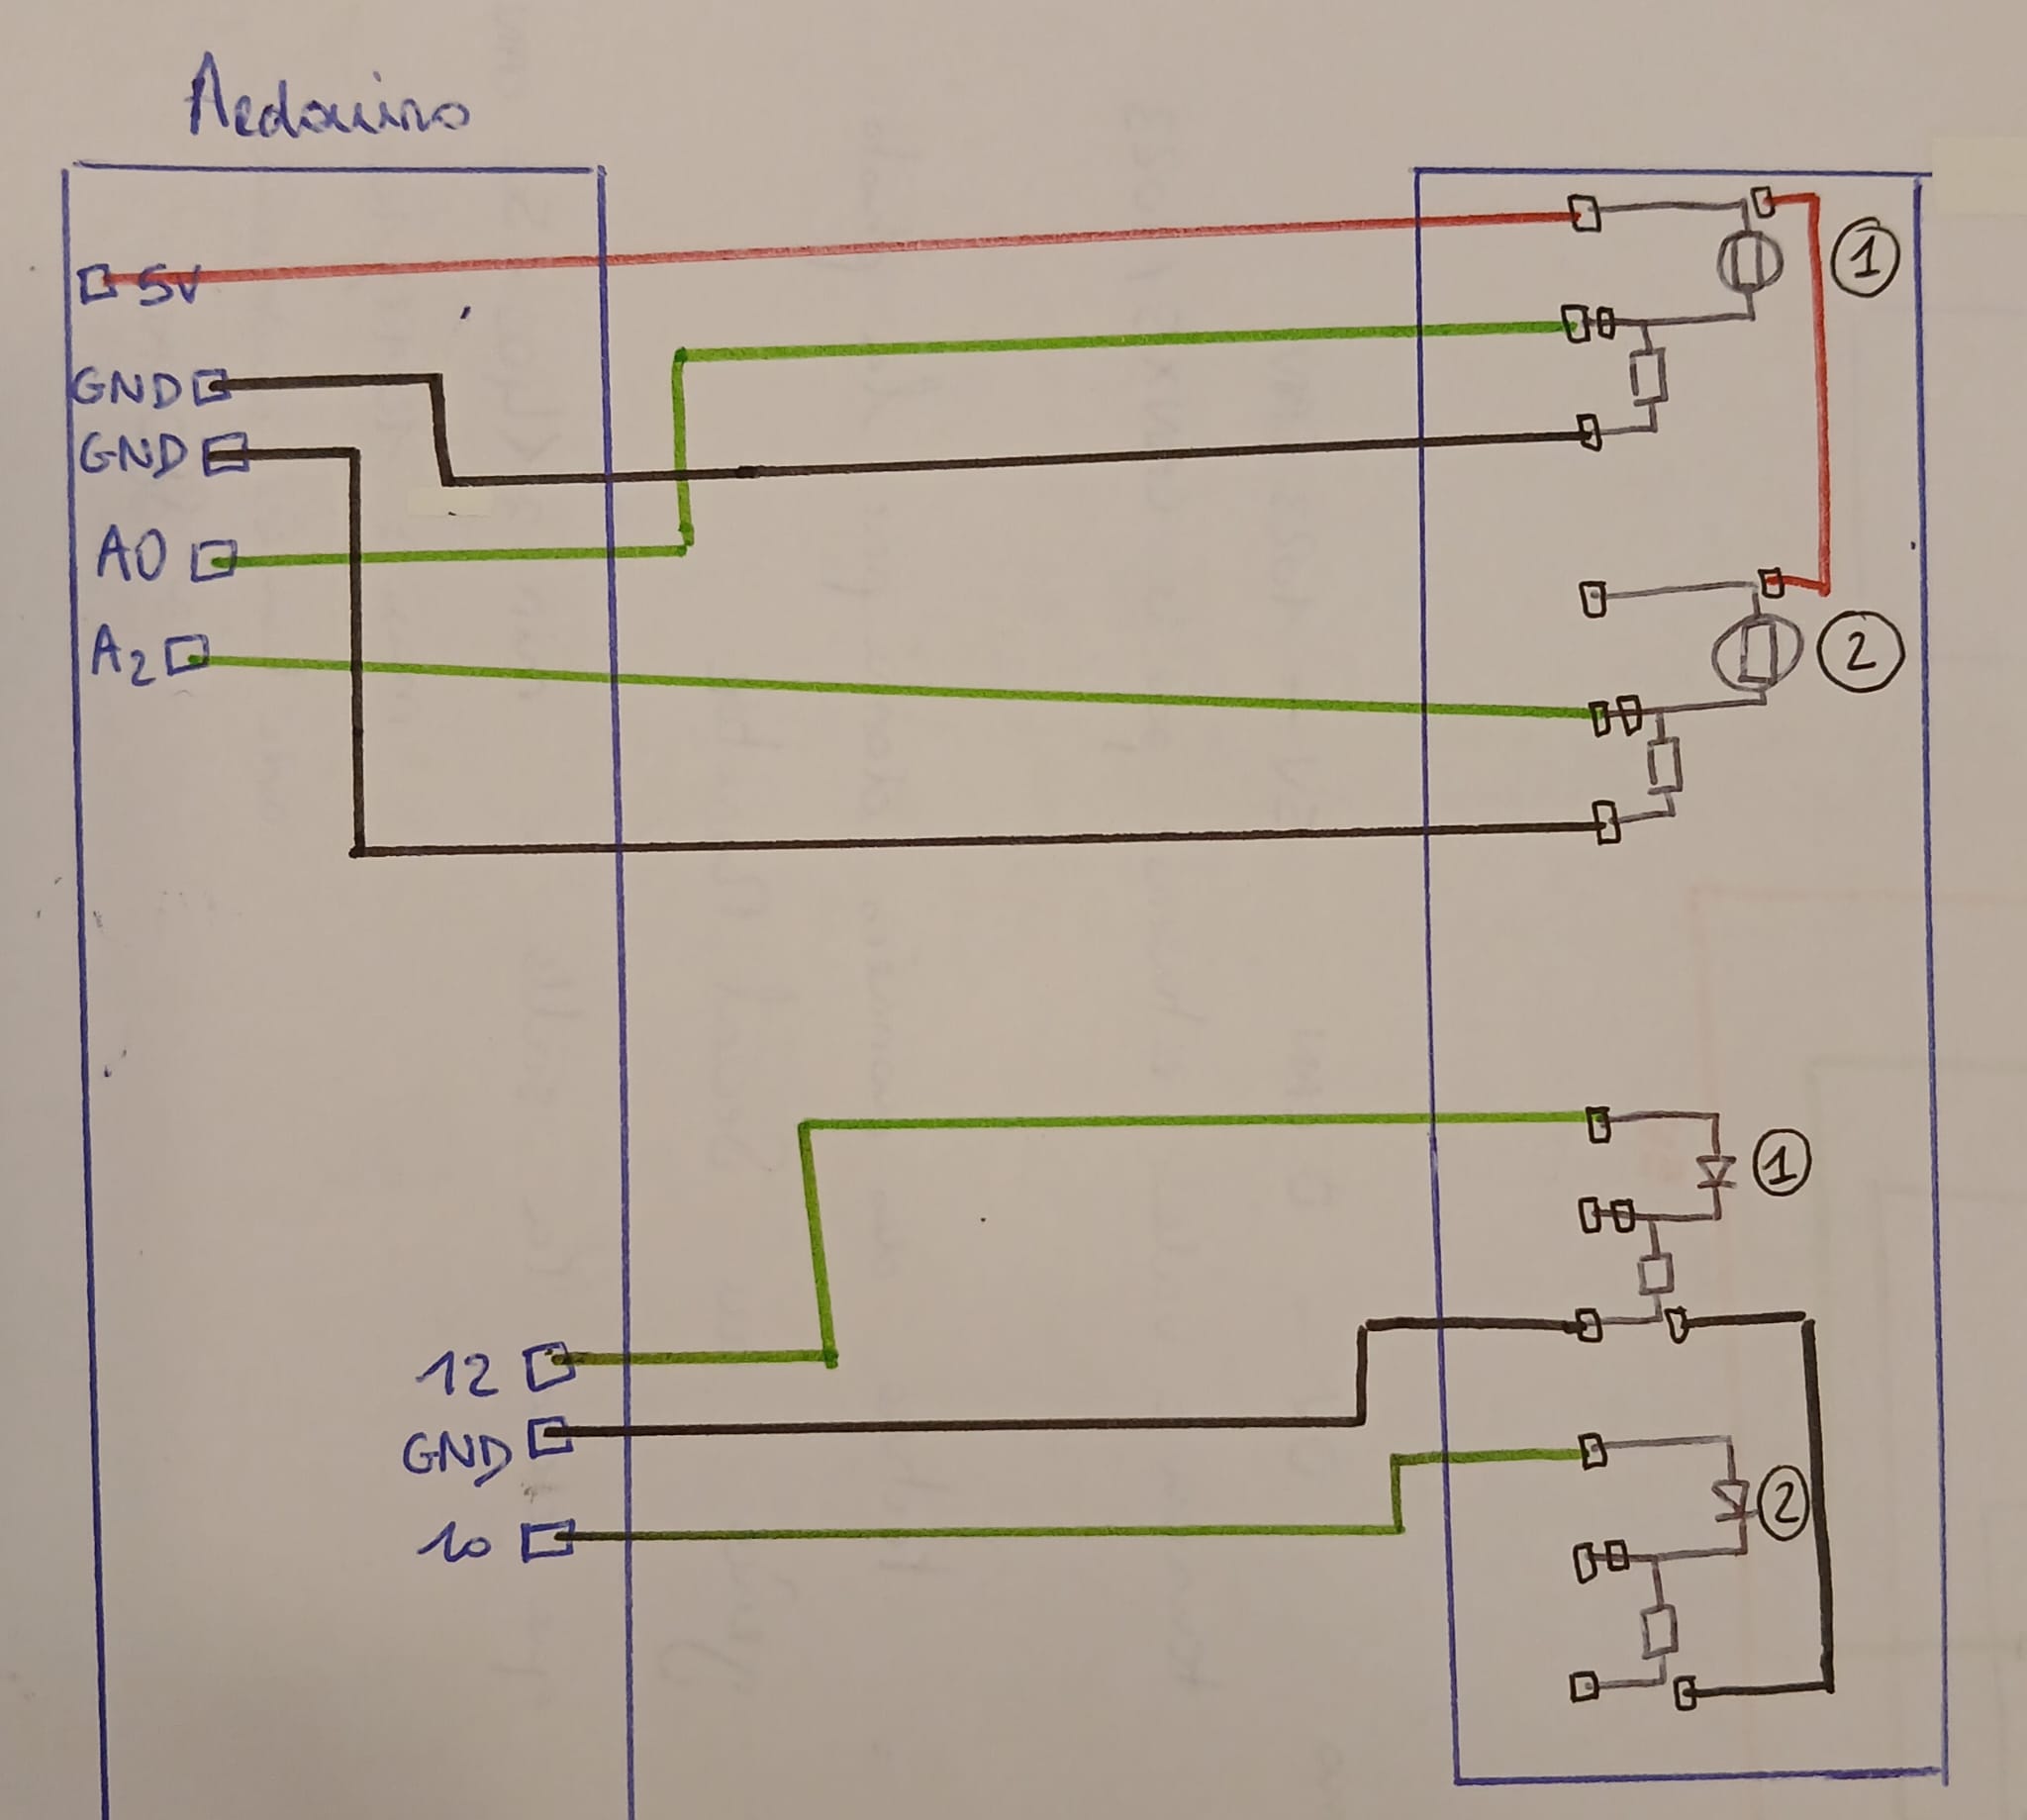 Arduino
5V
1
GND
GND
A0
A2
2
1
12
GND
2
10